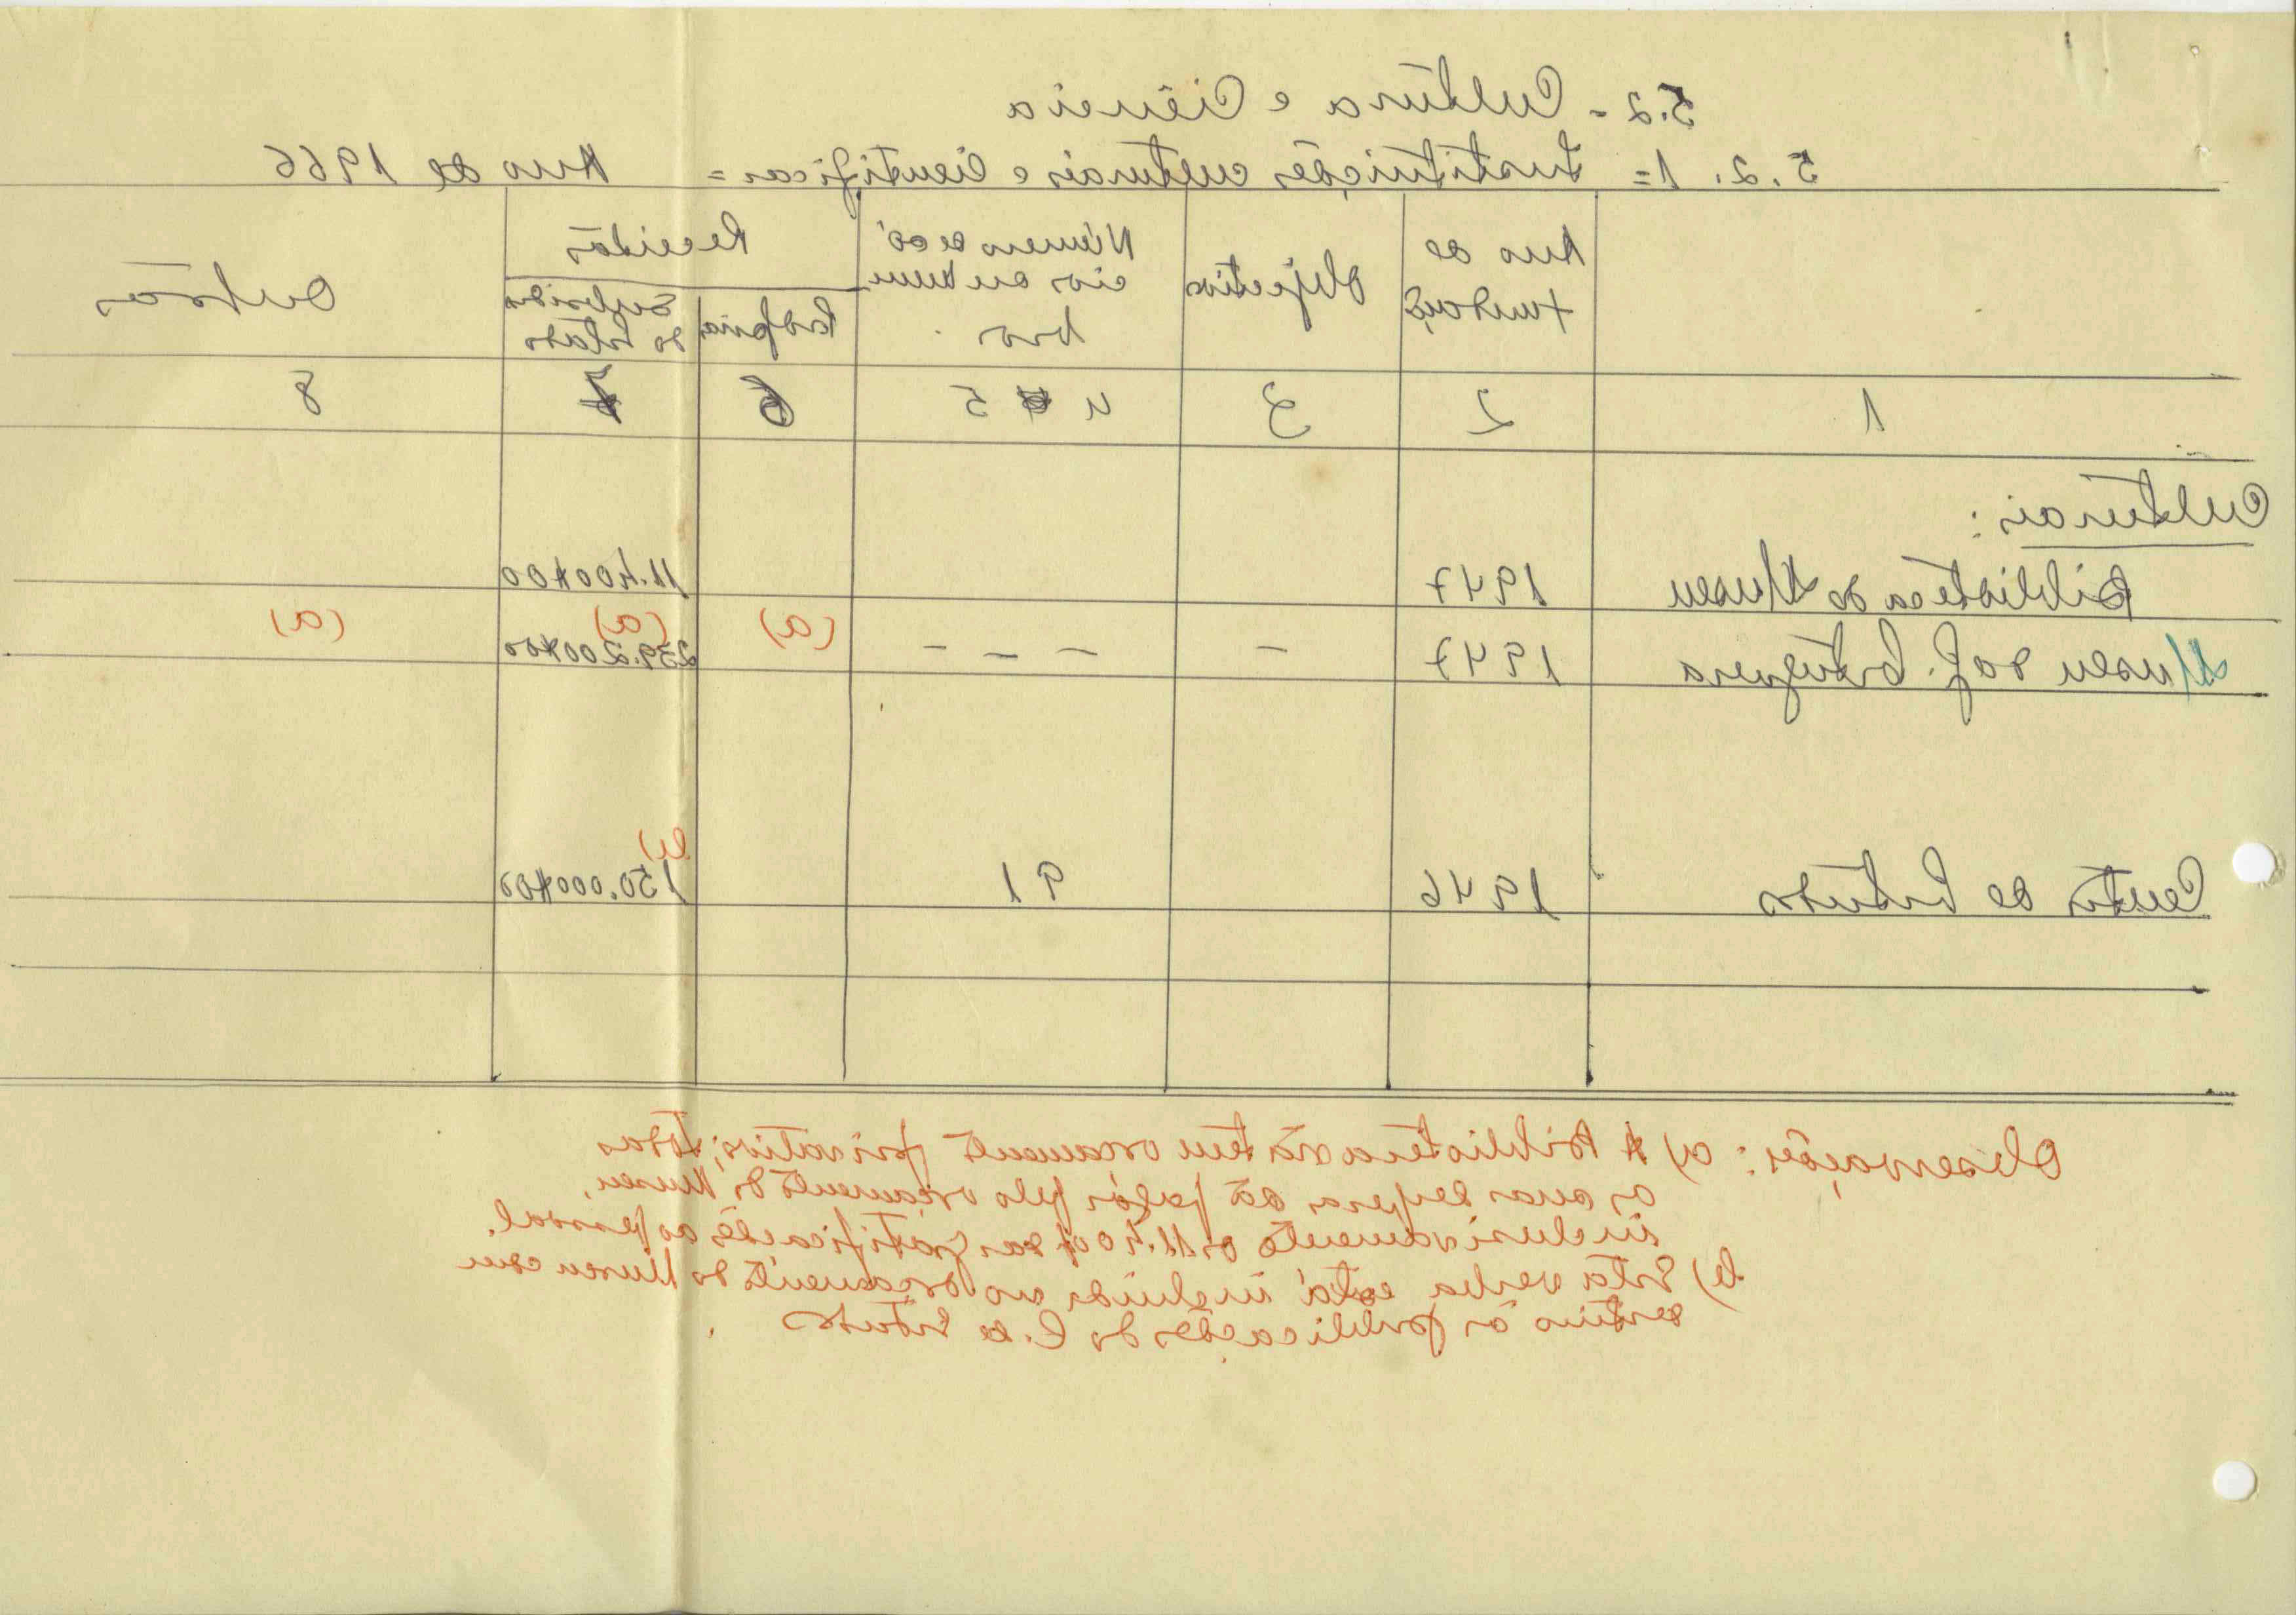 5.2 - Cultura e Ciência
5. 2. 1 = Instituições culturais e cientificas = Ano de 1966
Ano de
Fundaç.
Objectivos
Número de só-
cios ou mem
bros
Receitas
Próprias
Subsidios
do Estado
Outras
1 2 3 4 5 6 7 8
Culturais:
Biblioteca do Museu 1947 11.400$00
Museu da G. Portuguesa 1947 - - - - (a) (a) 239.200$00 (a)
Centro de Estudos 1946 91 b) 150.000$00
Observações: a) A Biblioteca não tem orçamento privativo; todas
as suas despesas são pagas pelo orçamento do Museu,
inclusivamente os 11.400$ das gratificações ao pessoal.
b) Esta verba está incluida no orçamento do Museu com
destino às publicações do C. de Estudos